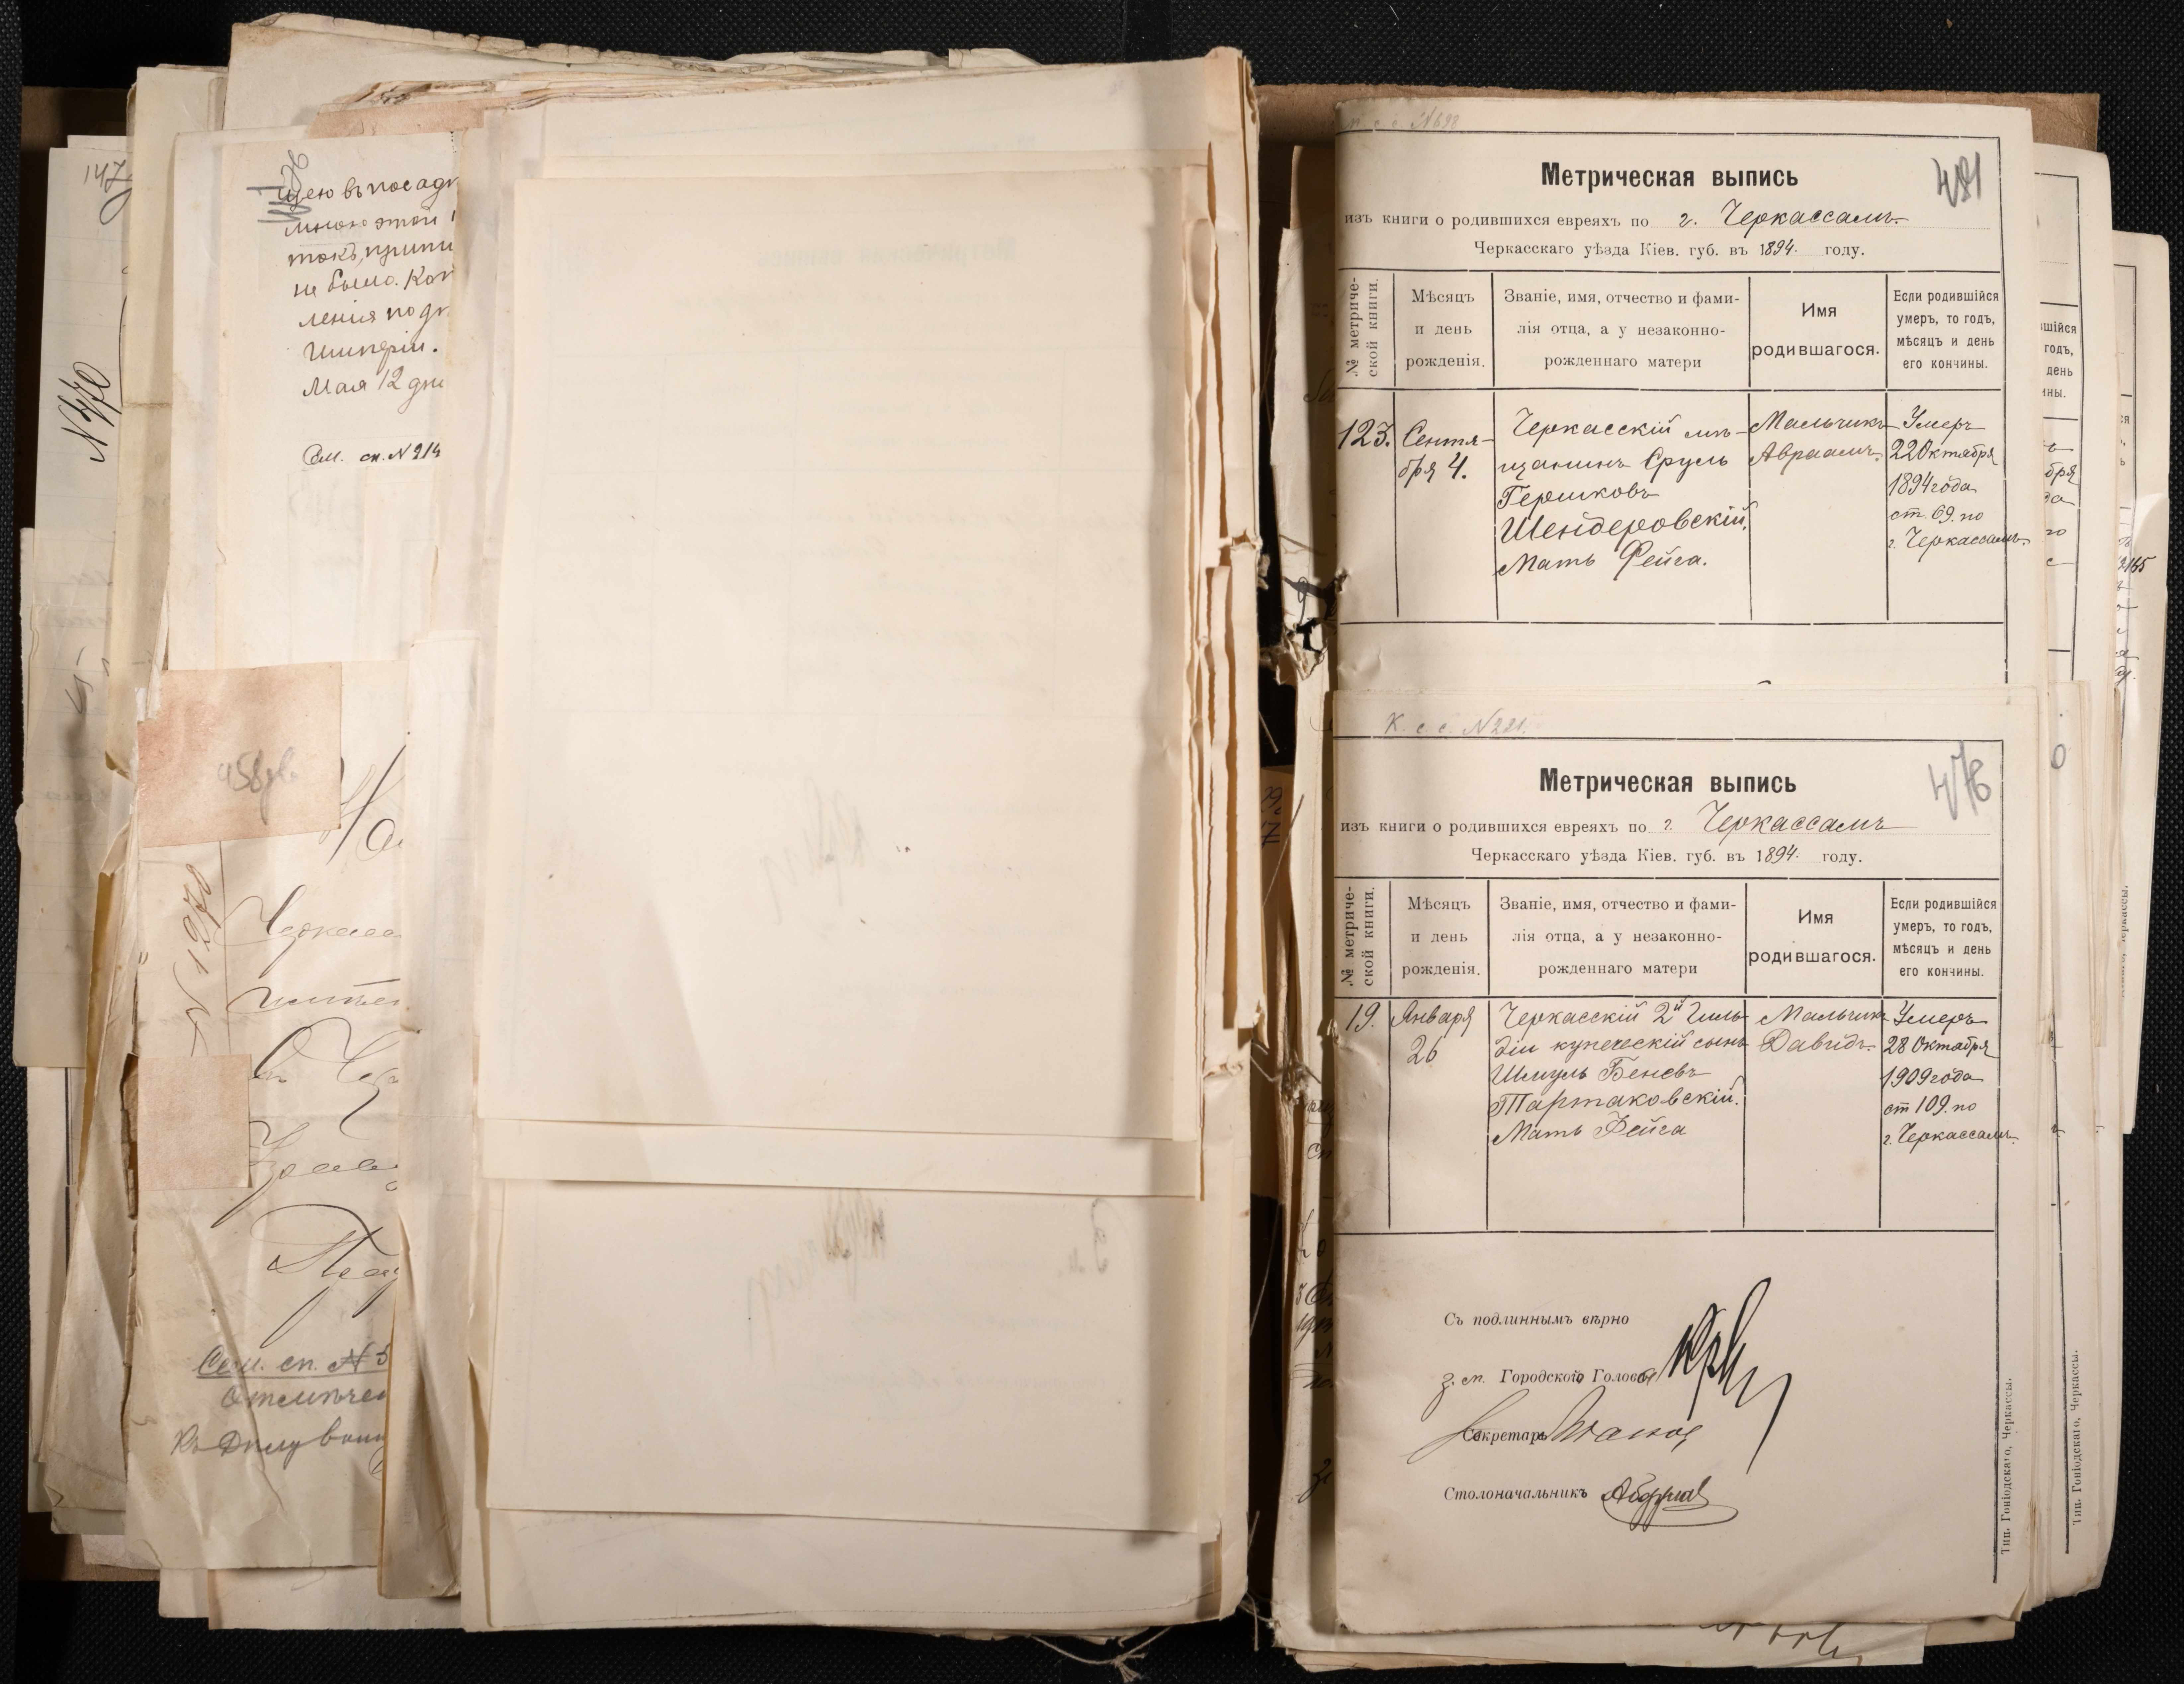 147
N 470
щею въ посадк
мною этой
токъ, припи
не было. Кон
ленія подк
Имперіи.
Мая 12 дня
Сем. сп. N 214
458
N 1270
Черкасс
Сем. сп. N 5
Отмѣчен
Къ дѣлу воин
М. с. с. N 692
481
Метрическая выпись
изъ книги о родившихся евреяхъ по г. Черкассамъ.
Черкасскаго уѣзда Кіев. губ. въ 1894. году.
№ метриче-
ской книги.
Мѣсяцъ
и день
рожденія.
Званіе, имя, отчество и фами-
лія отца, а у незаконно-
рожденнаго матери
Имя
родившагося.
Если родившійся
умеръ, то годъ,
мѣсяцъ и день
его кончины.
123.
Сентя-
бря 4.
Черкасскій мѣ-
щанинъ Сруль
Гершковъ
Шендеровскій.
Мать Фейга.
Мальчикъ
Авраамъ.
Умеръ
22 Октября
1894 года
ст. 69. по
г. Черкассамъ.
К. с. с. N 221.
476
Метрическая выпись
изъ книги о родившихся евреяхъ по г. Черкассамъ
Черкасскаго уѣзда Кіев. губ. въ 1894. году.
№ метриче-
ской книги.
Мѣсяцъ
и день
рожденія.
Званіе, имя, отчество и фами-
лія отца, а у незаконно-
рожденнаго матери
Имя
родившагося.
Если родившійся
умеръ, то годъ,
мѣсяцъ и день
его кончины.
19.
Января
26
Черкасскій 2й Гиль-
діи купеческій сынъ
Шмуль Беневъ
Тартаковскій.
Мать Фейга
Мальчикъ
Давидъ.
Умеръ
28 Октября
1909 года
ст 109. по
г. Черкассамъ.
Съ подлиннымъ вѣрно
З. м. Городского Головы
Секретарь
Столоначальникъ
Тип. Гоніодскаго, Черкассы.
шійся
годъ,
день
ины.
бря
да
го
Тип. Гоніодскаго, Черкассы.